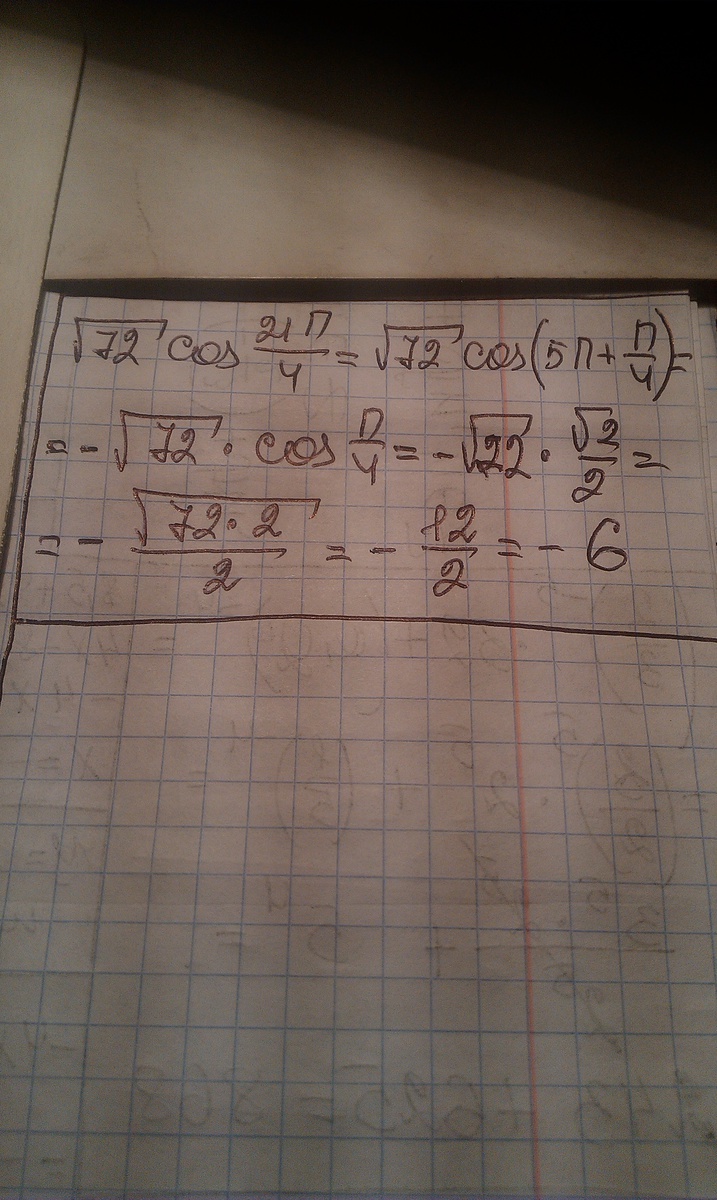 √72 cos 21π/4 = √72 cos(5π + π/4) =
= - √72 · cos π/4 = - √72 · √2/2 =
= - √(72 · 2)/2 = - 12/2 = - 6